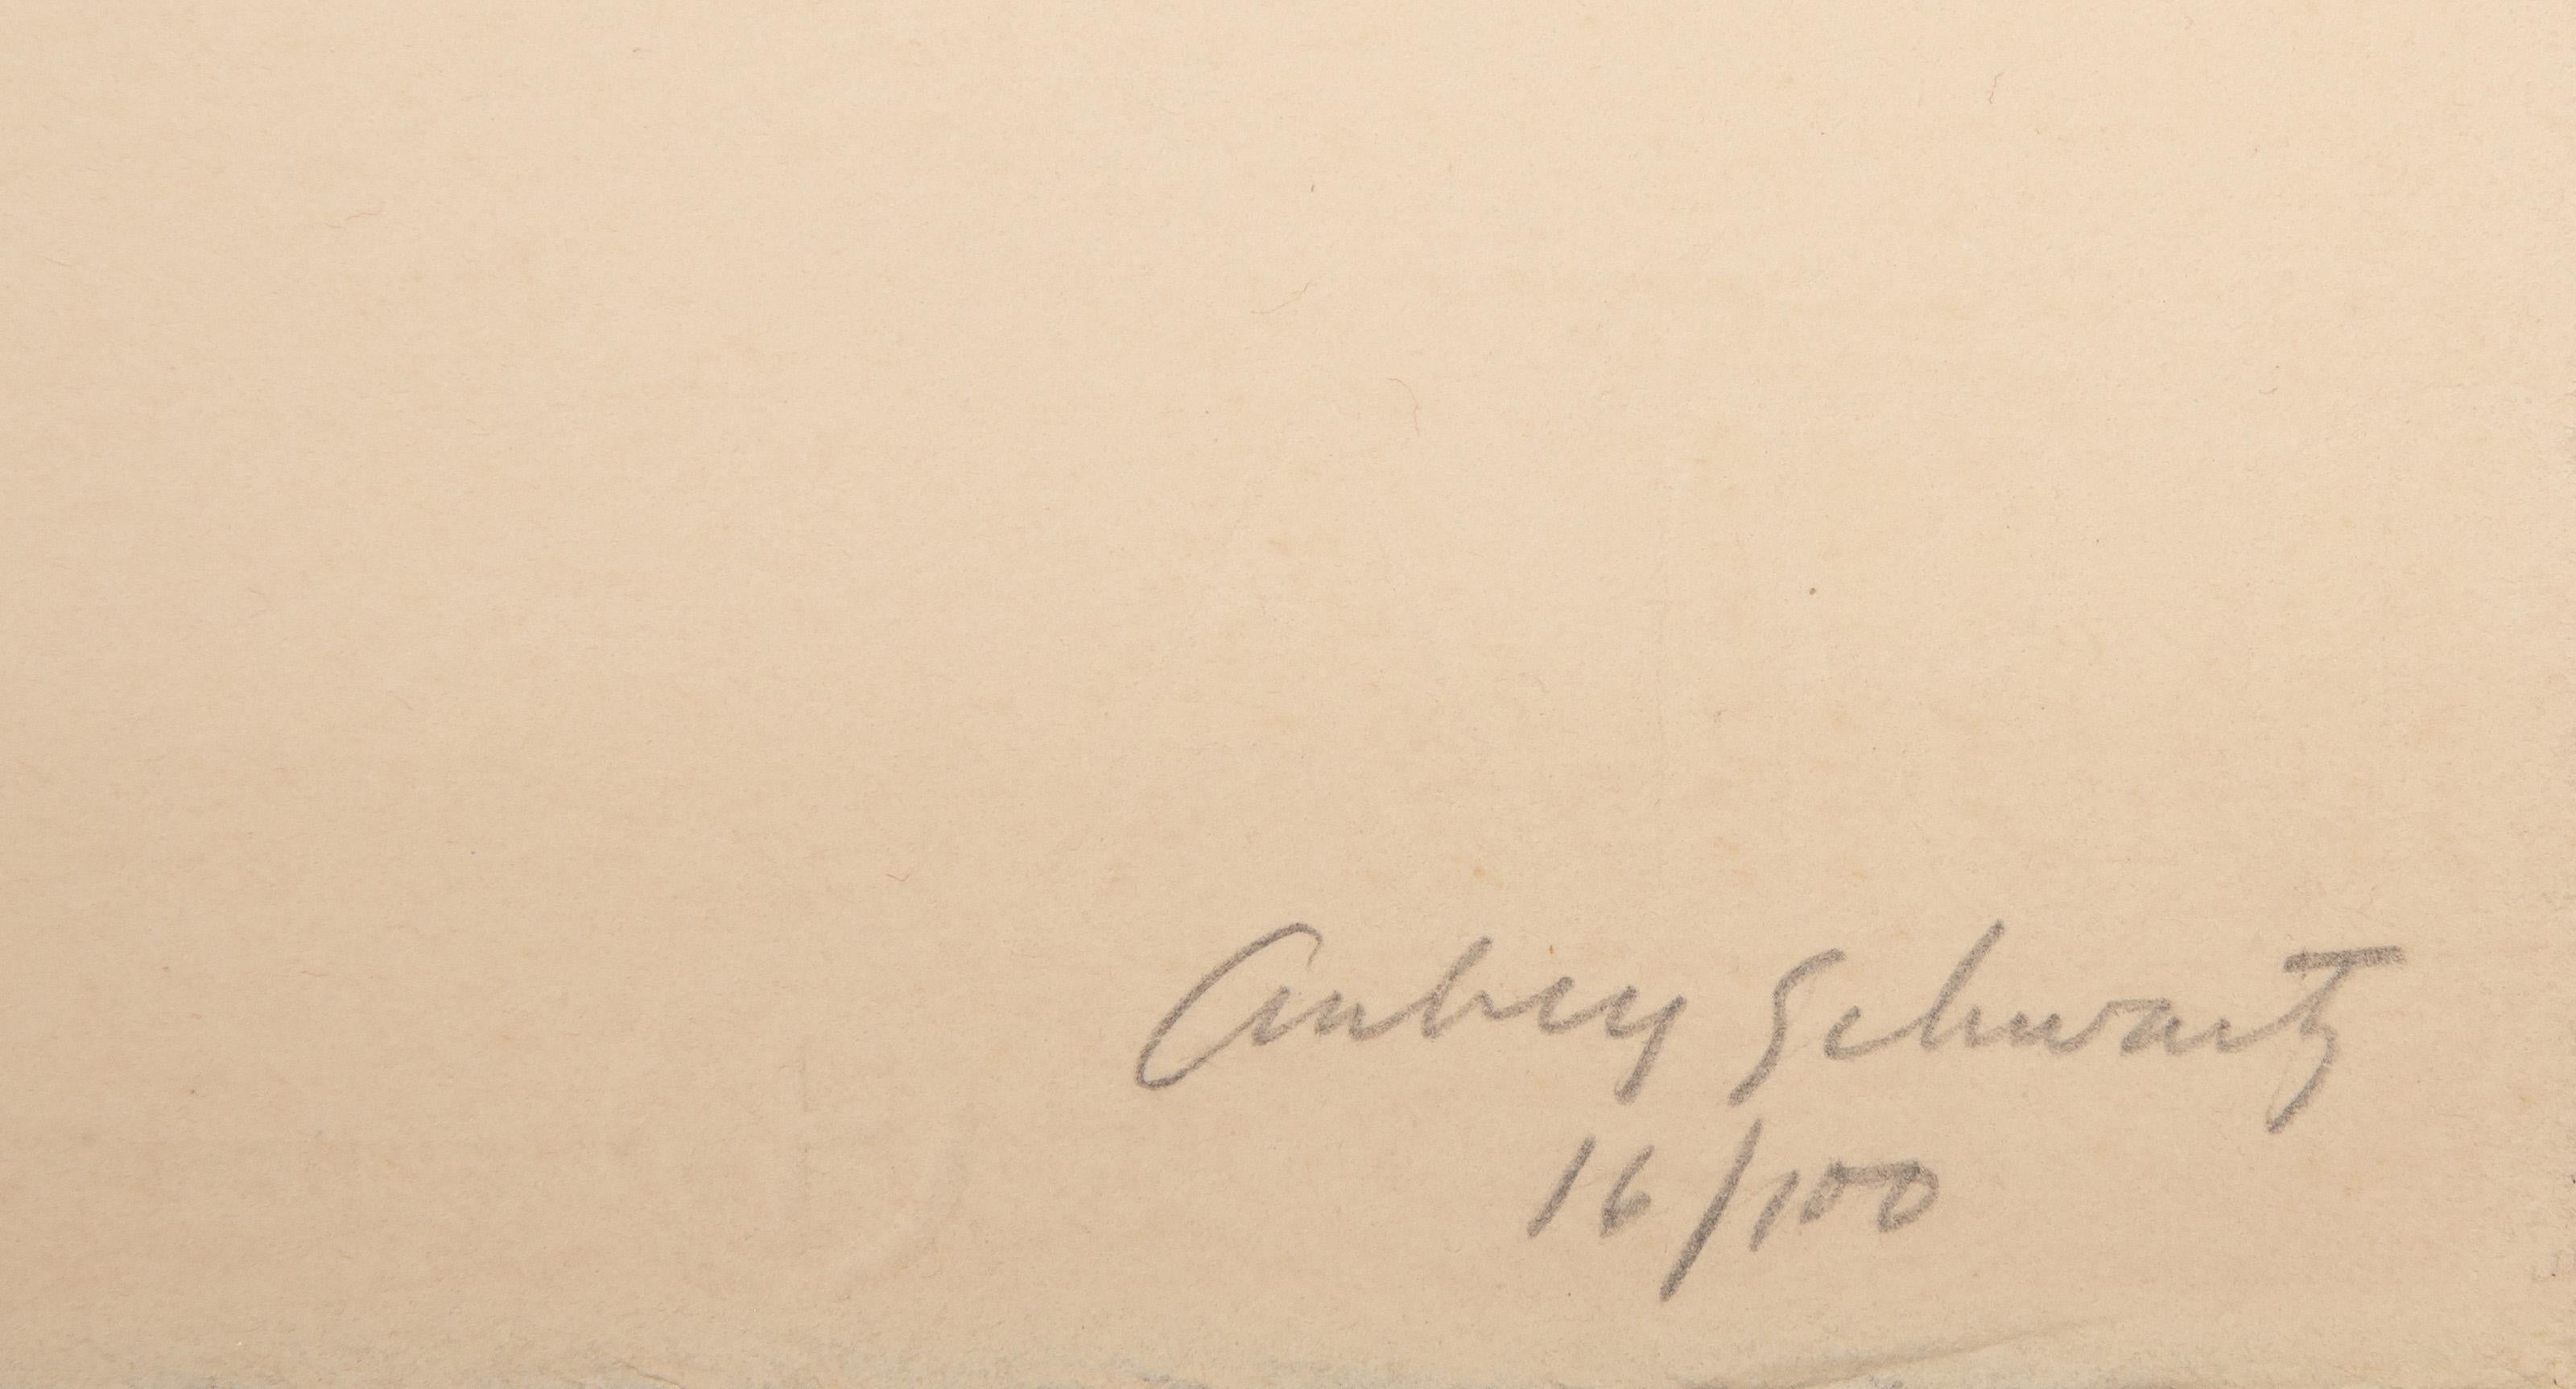 Aubrey Schwartz
16/100